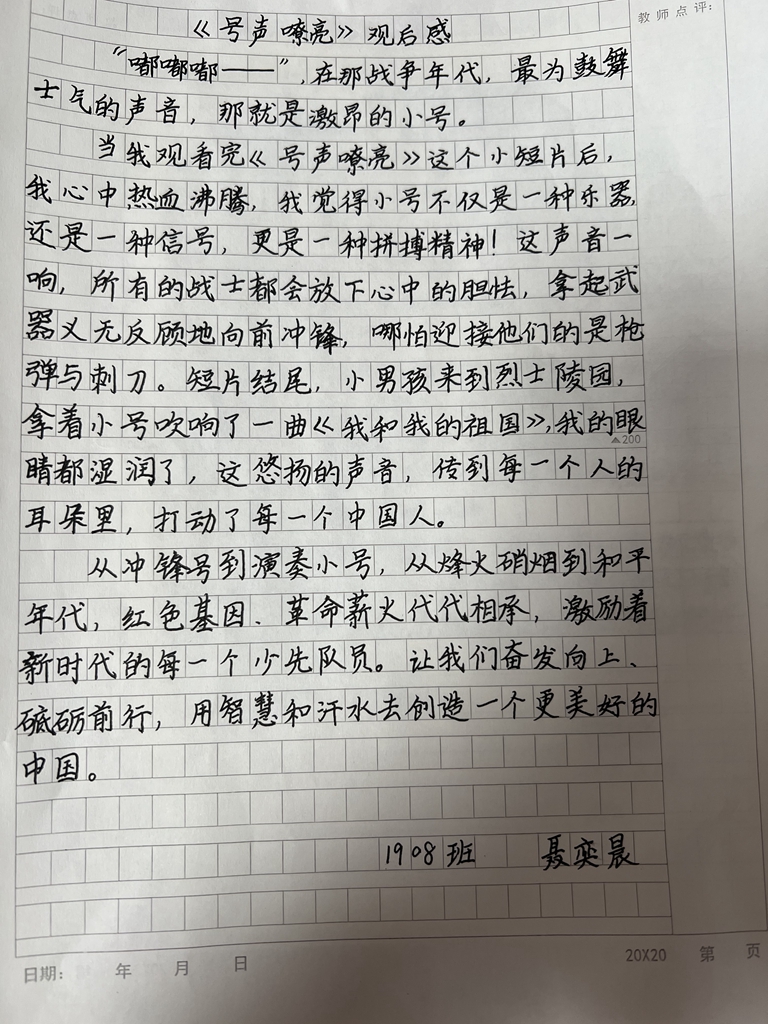 教师点评:
《号声嘹亮》观后感
“嘟嘟嘟——”,在那战争年代,最为鼓舞
士气的声音,那就是激昂的小号。
当我观看完《号声嘹亮》这个小短片后,
我心中热血沸腾,我觉得小号不仅是一种乐器,
还是一种信号,更是一种拼搏精神!这声音一
响,所有的战士都会放下心中的胆怯,拿起武
器义无反顾地向前冲锋,哪怕迎接他们的是枪
弹与刺刀。短片结尾,小男孩来到烈士陵园,
拿着小号吹响了一曲《我和我的祖国》,我的眼
▲200
睛都湿润了,这悠扬的声音,传到每一个人的
耳朵里,打动了每一个中国人。
从冲锋号到演奏小号,从烽火硝烟到和平
年代,红色基因、革命薪火代代相承,激励着
新时代的每一个少先队员。让我们奋发向上、
砥砺前行,用智慧和汗水去创造一个更美好的
中国。
1908班 聂奕晨
日期: 年 月 日 20X20 第 页